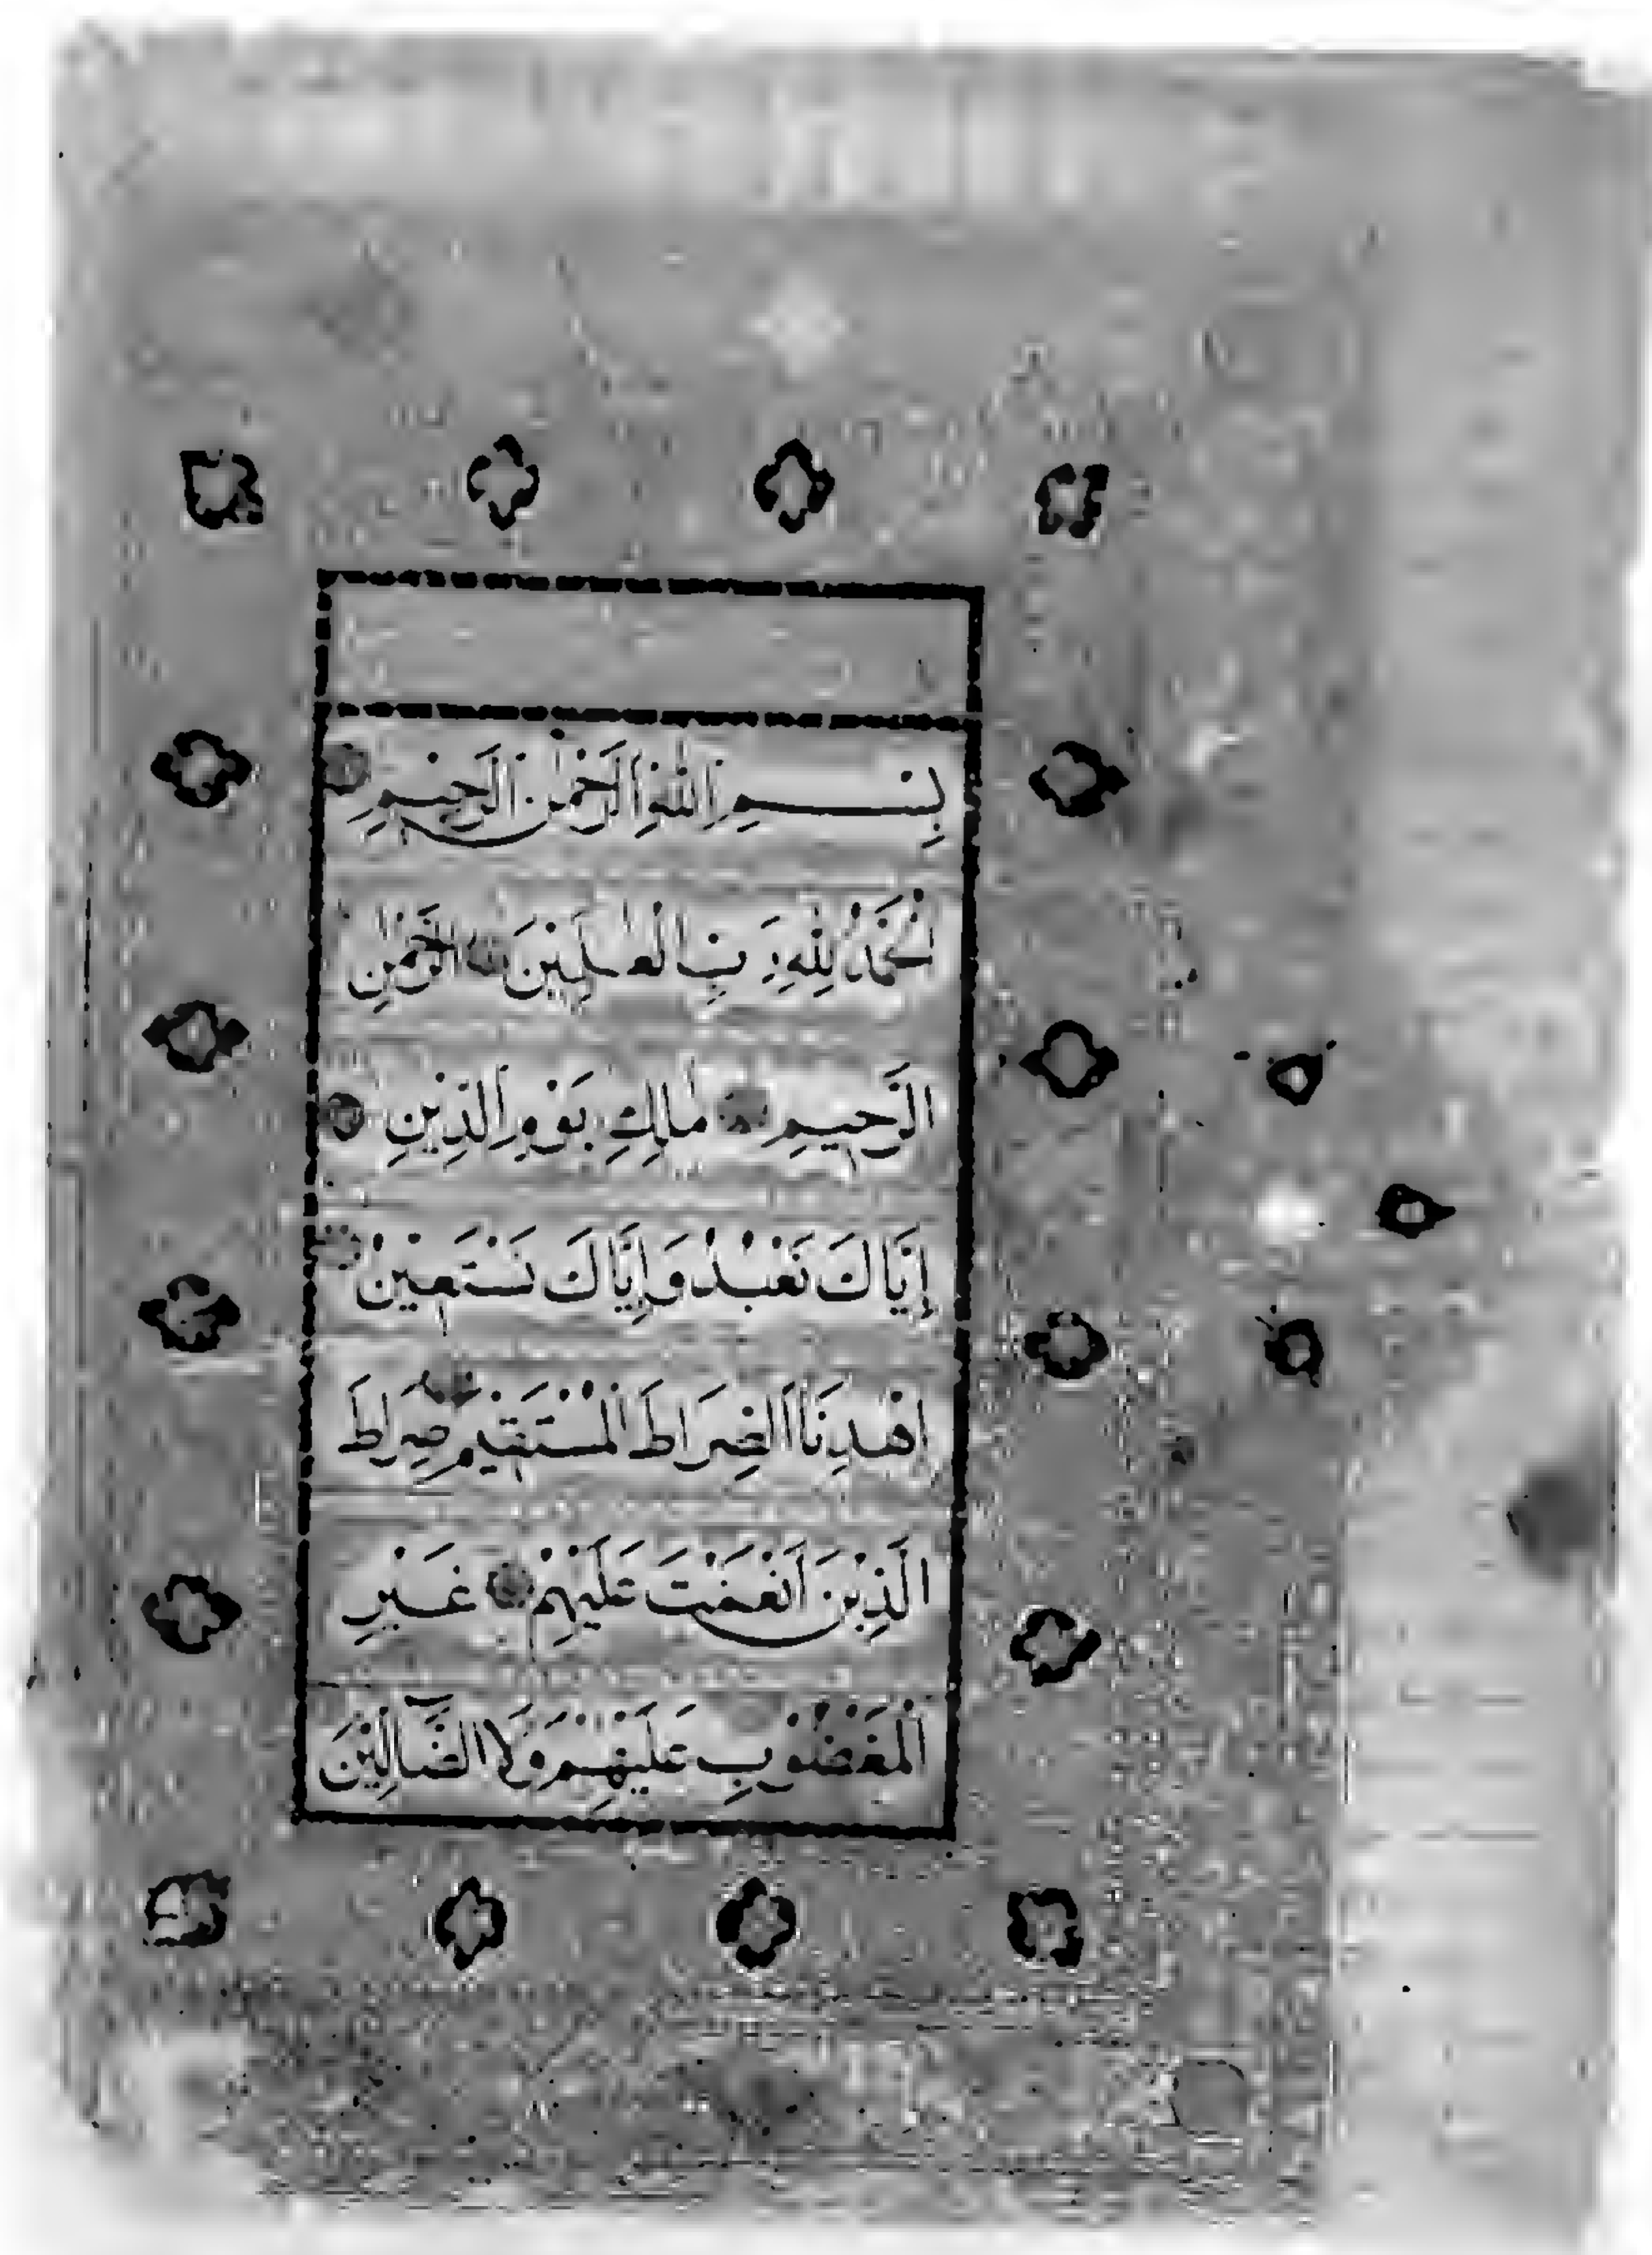 بِسْمِ اللّٰهِ الرَّحْمٰنِ الرَّحِيمِ
اَلْحَمْدُ لِلّٰهِ رَبِّ الْعٰلَمِينَ الرَّحْمٰنِ
الرَّحِيمِ مٰالِكِ يَوْمِ الدِّينِ
إِيَّاكَ نَعْبُدُ وَإِيَّاكَ نَسْتَعِينُ
اِهْدِنَا الصِّرَاطَ الْمُسْتَقِيمَ صِرَاطَ
الَّذِينَ اَنْعَمْتَ عَلَيْهِمْ غَيْرِ
الْمَغْضُوبِ عَلَيْهِمْ وَلَا الضَّآلِّينَ